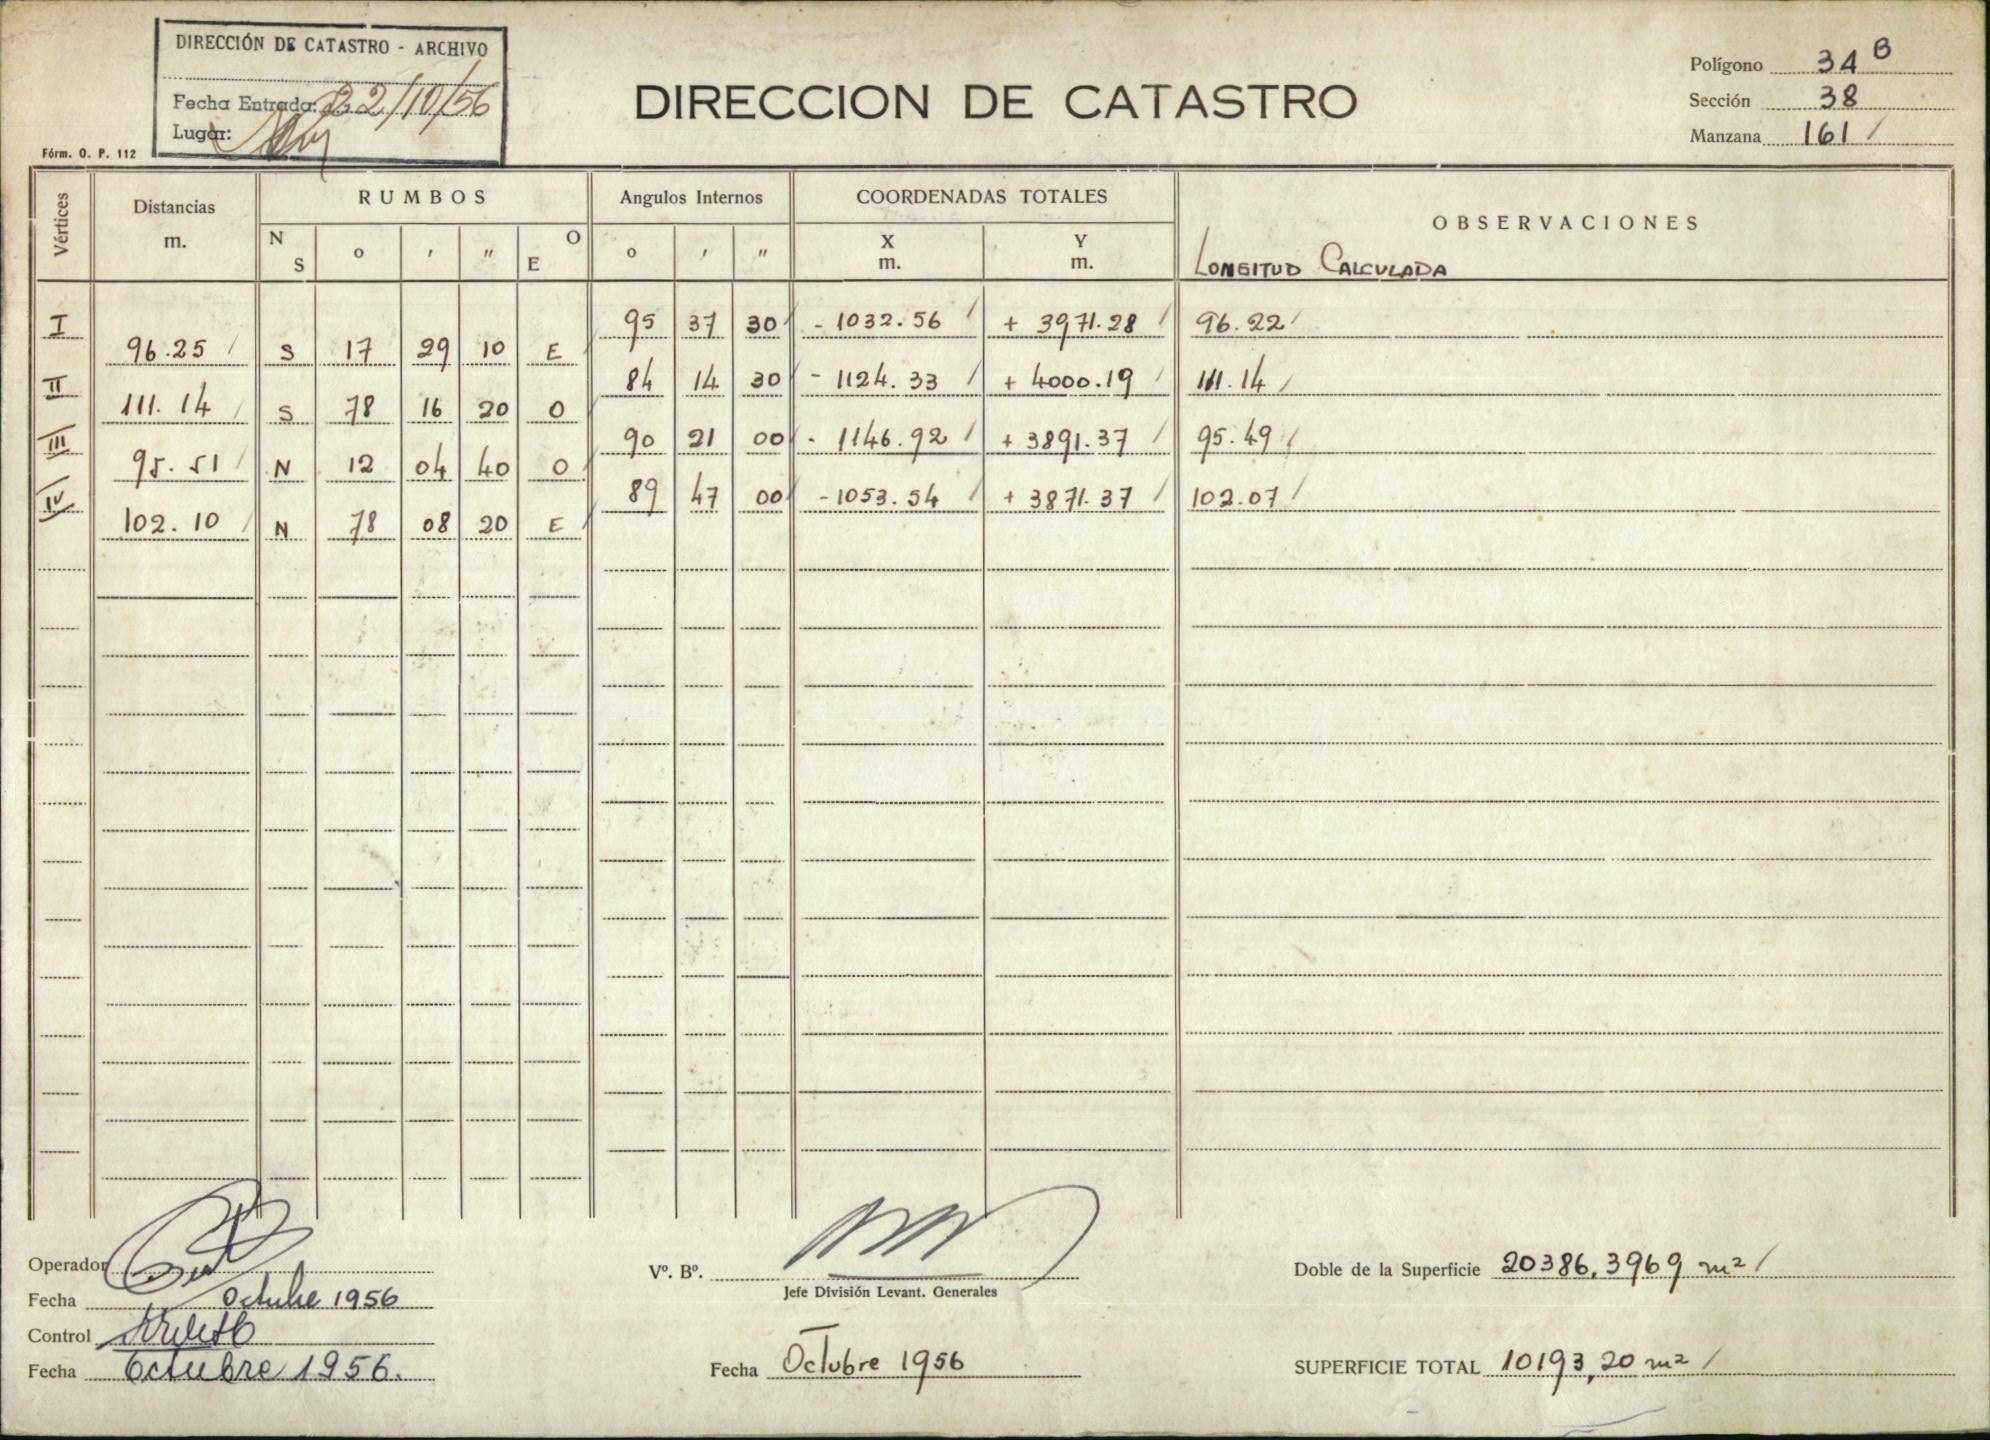 DIRECCIÓN DE CATASTRO - ARCHIVO
Fecha Entrada: 22/10/56
Lugar:
Fórm. O. P. 112
DIRECCION DE CATASTRO
Polígono 34 B
Sección 38
Manzana 161 /
Vértices Distancias m. RUMBOS Angulos Internos COORDENADAS TOTALES OBSERVACIONES
N S ° ′ ″ O E ° ′ ″ X m. Y m. LONGITUD CALCULADA
I 95 37 30 / - 1032.56 / + 3971.28 / 96.22 /
96.25 / S 17 29 10 E
II 84 14 30 / - 1124.33 / + 4000.19 / 111.14 /
111.14 / S 78 16 20 O
III 90 21 00 / - 1146.92 / + 3891.37 / 95.49 /
95.51 / N 12 04 40 O /
IV 89 47 00 / - 1053.54 / + 3871.37 / 102.07 /
102.10 / N 78 08 20 E /
Operador
Fecha Octubre 1956
Control
Fecha Octubre 1956.
Vº. Bº.
Jefe División Levant. Generales
Fecha Octubre 1956
Doble de la Superficie 20386,3969 m² /
SUPERFICIE TOTAL 10193,20 m² /